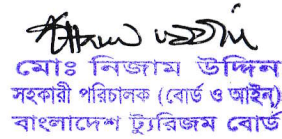 মোঃ নিজাম উদ্দিন
সহকারী পরিচালক (বোর্ড ও আইন)
বাংলাদেশ ট্যুরিজম বোর্ড